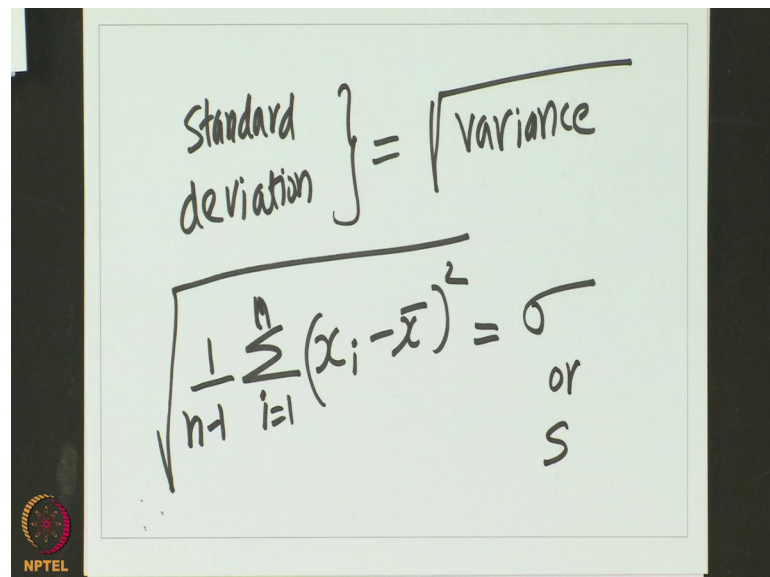 Standard deviation } = √variance
√(1/(n-1) Σ_{i=1}^{n} (x_i - x̄)²) = σ
or
S
NPTEL